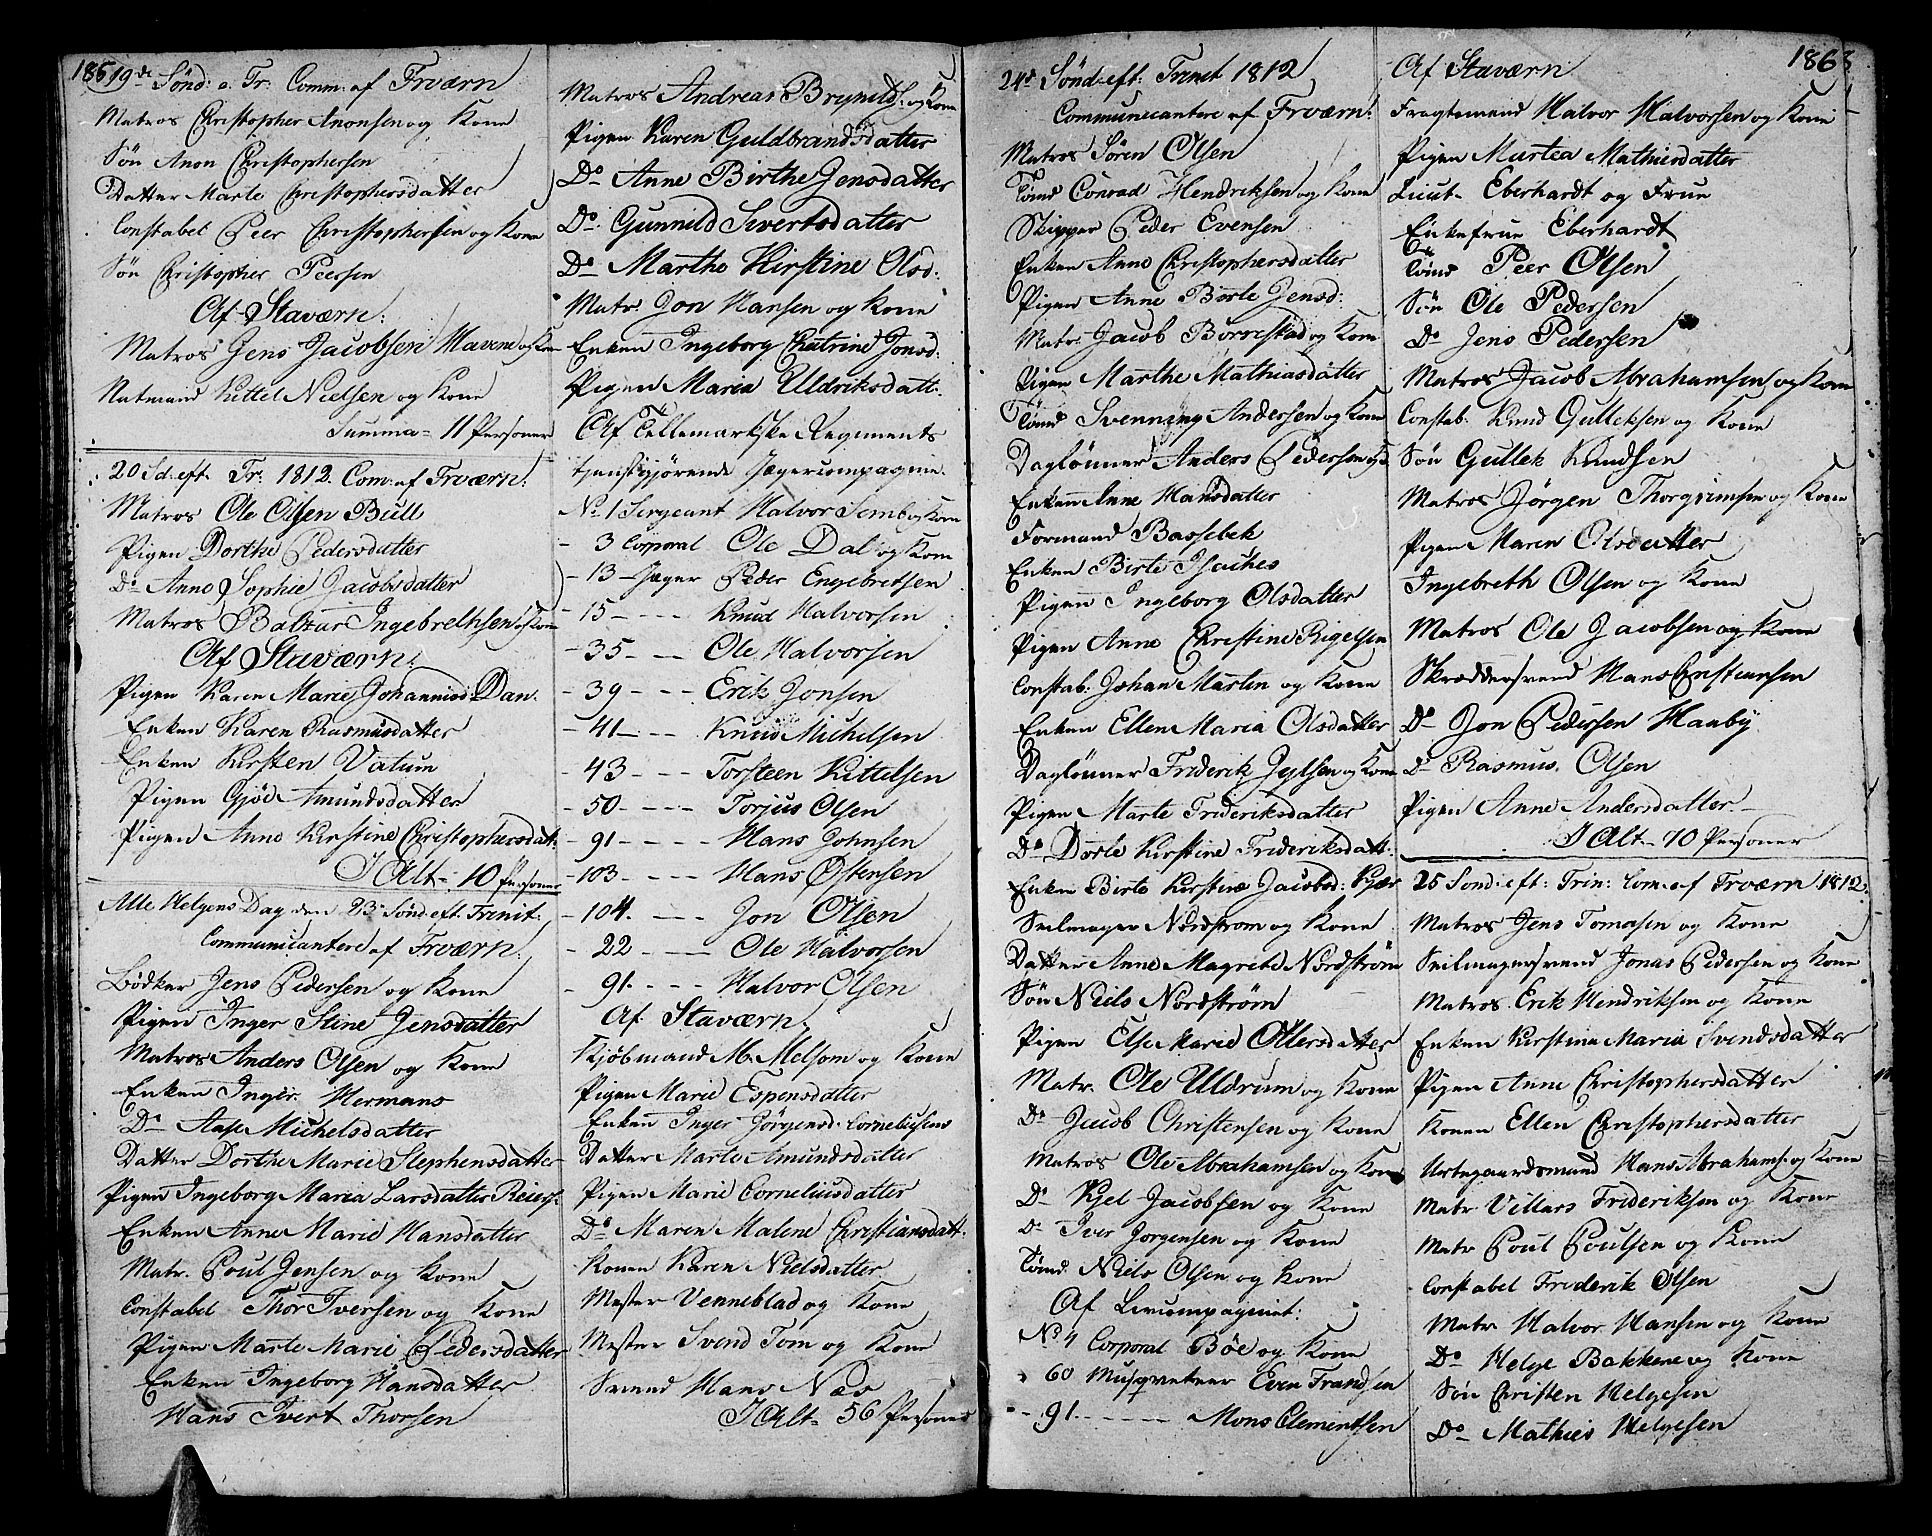 185
19de Sønd: e. Tr: Comm: af Frværn
Matros Christopher Anonsen og Kone
Søn Anon Christophersen
Datter Marte Christophersdatter
Constabel Peer Christophersen og Kone
Søn Christopher Peersen
Af Staværn:
Matros Jens Jacobsen Havene og Kone
Natmand Kittel Nielsen og Kone
Summa = 11 Personer
20 Sd: eft. Tr: 1812. Com: af Frværn:
Matros Ole Olsen Bull
Pigen Dorthe Pedersdatter
Do Anne Sophie Jacobsdatter
Matros Baltzar Ingebrethsen og Kone
Af Staværn:
Pigen Karen Marie Johannisd: Dan.
Enken Karen Rasmusdatter
Enken Kirsten Vatum
Pigen Gjøe Amundsdatter
Pigen Anne Kirstine Christophersdatt:
I Alt - 10 Personer
Alle Helgens Dag den 23de Sønd: eft. Trinit:
Communicantere af Frværn:
Bødker Jens Pedersen og Kone
Pigen Inger Stine Jensdatter
Matros Anders Olsen og Kone
Enken Inger Hermans
Do Aase Michelsdatter
Datter Dorthe Marie Stephensdatter
Pigen Ingeborg Maria Larsdatter Reiers:
Enken Anne Marie Hansdatter
Matr. Poul Jensen og Kone
Constabel Thor Iversen og Kone
Pigen Marte Marie Pedersdatter
Enken Ingeborg Hansdatter
Hans Ivert Thorsen
Matros Andreas Brynild: og Kone
Pigen Karen Guldbrandsdatter
Do Anne Birthe Jensdatter
Do Gunnild Sivertsdatter
Do Marthe Kirstine Olsd:
Matr. Jon Hansen og Kone
Enken Ingeborg Chatrine Jonsd:
Pigen Maria Uldriksdatt:
Af Tellemarkske Regiments
tjenstgjørende Jægercompagnie.
No 1 Sergeant Halvor Semb og Kone
- 3 Corporal Ole Dal og Kone
- 13 - Jæger Peder Engebretsen
- 15 - - - Knud Halvorsen
- 35 - - - Ole Halvorsen
- 39 - - - Erik Jonsen
- 41 - - - Knud Michelsen
- 43 - - - Torsteen Kittelsen
- 50 - - - Torjus Olsen
- 91 - - - Hans Johnsen
- 103 - - - Hans Østensen
- 104. - - - Jon Olsen
- 22 - - - Ole Halvorsen
- 91. - - - Halvor Olsen
Af Staværn.
Kjøbmand M. Melsom og Kone
Pigen Marie Espensdatter
Enken Inger Jørgensd: Corneliusens
Datter Marte Amundsdatter
Pigen Marie Corneliusdatter
Do Maren Malene Christiansdatt:
Konen Karen Nielsdatter
Mester Venneblad og Kone
Mester Svend Tom og Kone
Svend Hans Næs
I Alt - 56 Personer
24de Sønd: eft: Trinit 1812
Communicantere af Frværn:
Matros Søren Olsen
Tømd Conrad Hendriksen og Kone
Skipper Peder Evensen
Enken Anne Christophersdatter
Pigen Anne Borte Jensd:
Matr. Jacob Borrestad og Kone
Pigen Marthe Mathiasdatter
Tømd Svenning Andersen og Kone
Daglønner Anders Pedersen og
Enken Anne Hansdatter
Formand Bassebek
Enken Birte Isachs
Pigen Ingeborg Olsdatter
Pigen Anne Christine Rigelsen
Constab: Johan Martin og Kone
Enken Ellen Maria Olsdatter
Daglønner Friderik Jylsen og Kone
Pigen Marte Frideriksdatter
Do Dorte Kirstine Frideriksdatt:
Enken Birte Kirstine Jacobsd: Kjær
Seilmager Nordstrøm og Kone
Datter Anne Magrete Nordstrøm
Søn Niels Nordstrøm
Pigen Else Marie Ollersdatter
Matr. Ole Uldrum og Kone
Do Jacob Christensen og Kone
Matros Ole Abrahamsen og Kone
Do Kjel Jacobsen og Kone
Do Iver Jørgensen og Kone
Tømd. Niels Olsen og Kone
Af Livcompagniet:
No 4 Corporal Böe og Kone
60 Musqveteer Even Frandsen
- 91. - - - Mons Clementsen
1863
Af Staværn
Fragtemand Halvor Halvorsen og Kone
Pigen Martea Mathisdatter
Lieut. Eberhardt og Frue
Enkefrue Eberhardt
Tømd Peer Olsen
Søn Ole Pedersen
Do Jens Pedersen
Matros Jacob Abrahamsen og Kone
Constab. Knud Gulleksen og Kone
Søn Gullek Knudsen
Matros Jörgen Thorgrimsen og Kone
Pigen Maren Olsdatter
Ingebreth Olsen og Kone
Matros Ole Jacobsen og Kone
Skræddersvend Hans Christiansen
Do Jon Pedersen Haaby
Do Rasmus Olsen
Pigen Anne Andersdatter
I Alt - 70 Personer
25 Sond: eft: Trin: Com: af Frværn 1812.
Matros Jens Tomasen og Kone
Seilmagersvend Jonas Pedersen og Kone
Matros Erik Hendriksen og Kone
Enken Kirstina Maria Svendsdatter
Pigen Anne Christophersdatter
Konen Ellen Christophersdatter
Urtegaardsmand Hans Abrahams: og Kone
Matr Villars Frideriksen og Kone
Matr Poul Poulsen og Kone
Constabel Friderik Olsen
Matr Halvor Hansen og Kone
Do Helge Bakkene og Kone
Søn Christen Helgesen
Do Mathies Helgesen